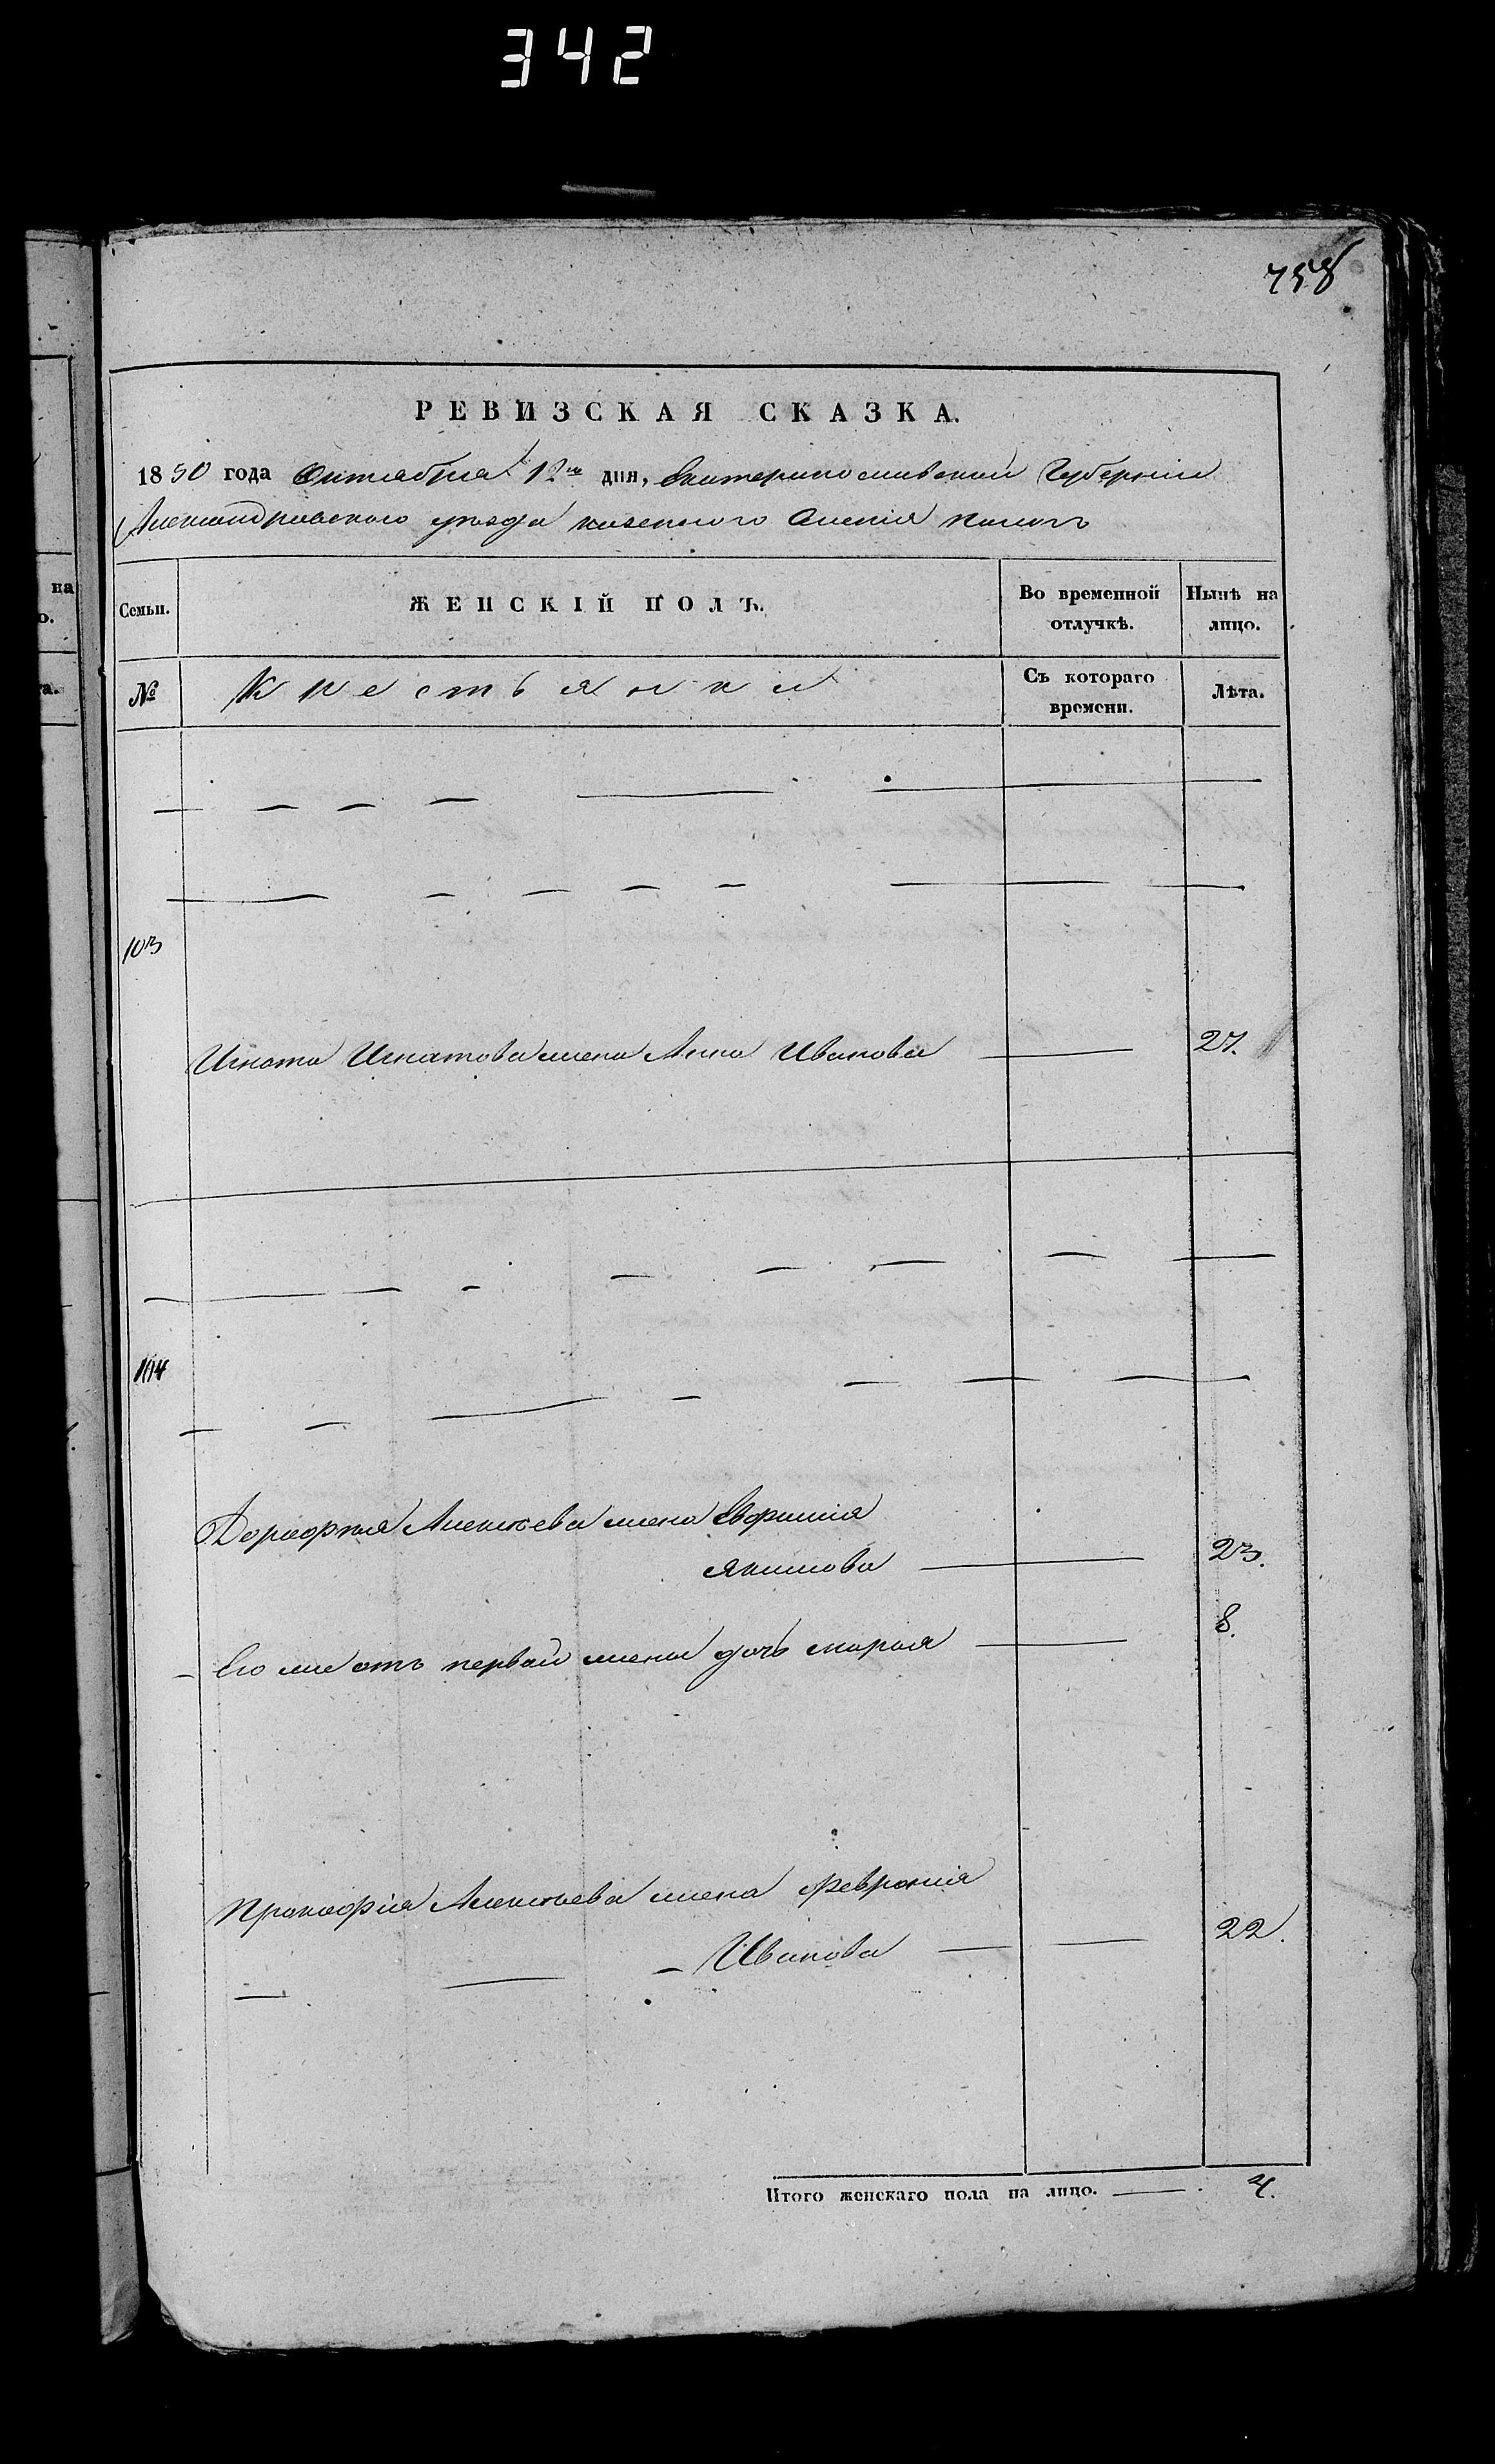 342
758
РЕВИЗСКАЯ СКАЗКА.
1850 года Октября 12го дня, Екатеринославской Губернии
Александровского уезда казенного Селения
Семьи.
ЖЕНСКІЙ ПОЛЪ.
Во временной отлучкѣ.
Нынѣ на лицо.
№
Крестьянки
Съ котораго времени.
Лѣта.
103
Игната Игнатова жена Анна Иванова 27.
104
Дорофея Алексеева жена Евфимия
Якимова 23.
Его же отъ первой жены дочь Мария 8.
Прокофия Алексеева жена Феврония
Иванова 22.
Итого женскаго пола на лицо. 4.
на
о.
та.